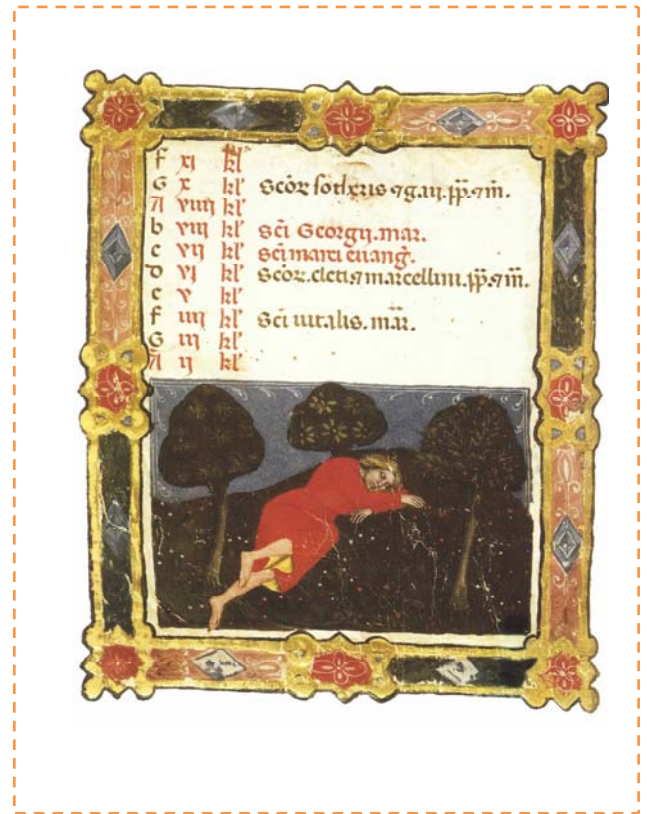 f xj kl'
G x kl' Scōꝝ sotheris ⁊ gaij. pp̄. ⁊ m̄.
A viiij kl'
b viij kl' Sc̄i Georgij. mar.
c vij kl' Sc̄i marci euang̃.
D vj kl' Scōꝝ. cleti ⁊ marcellini. pp̄. ⁊ m̄.
e v kl'
f iiij kl' Sc̄i uitalis. mār.
G iij kl'
A ij kl'